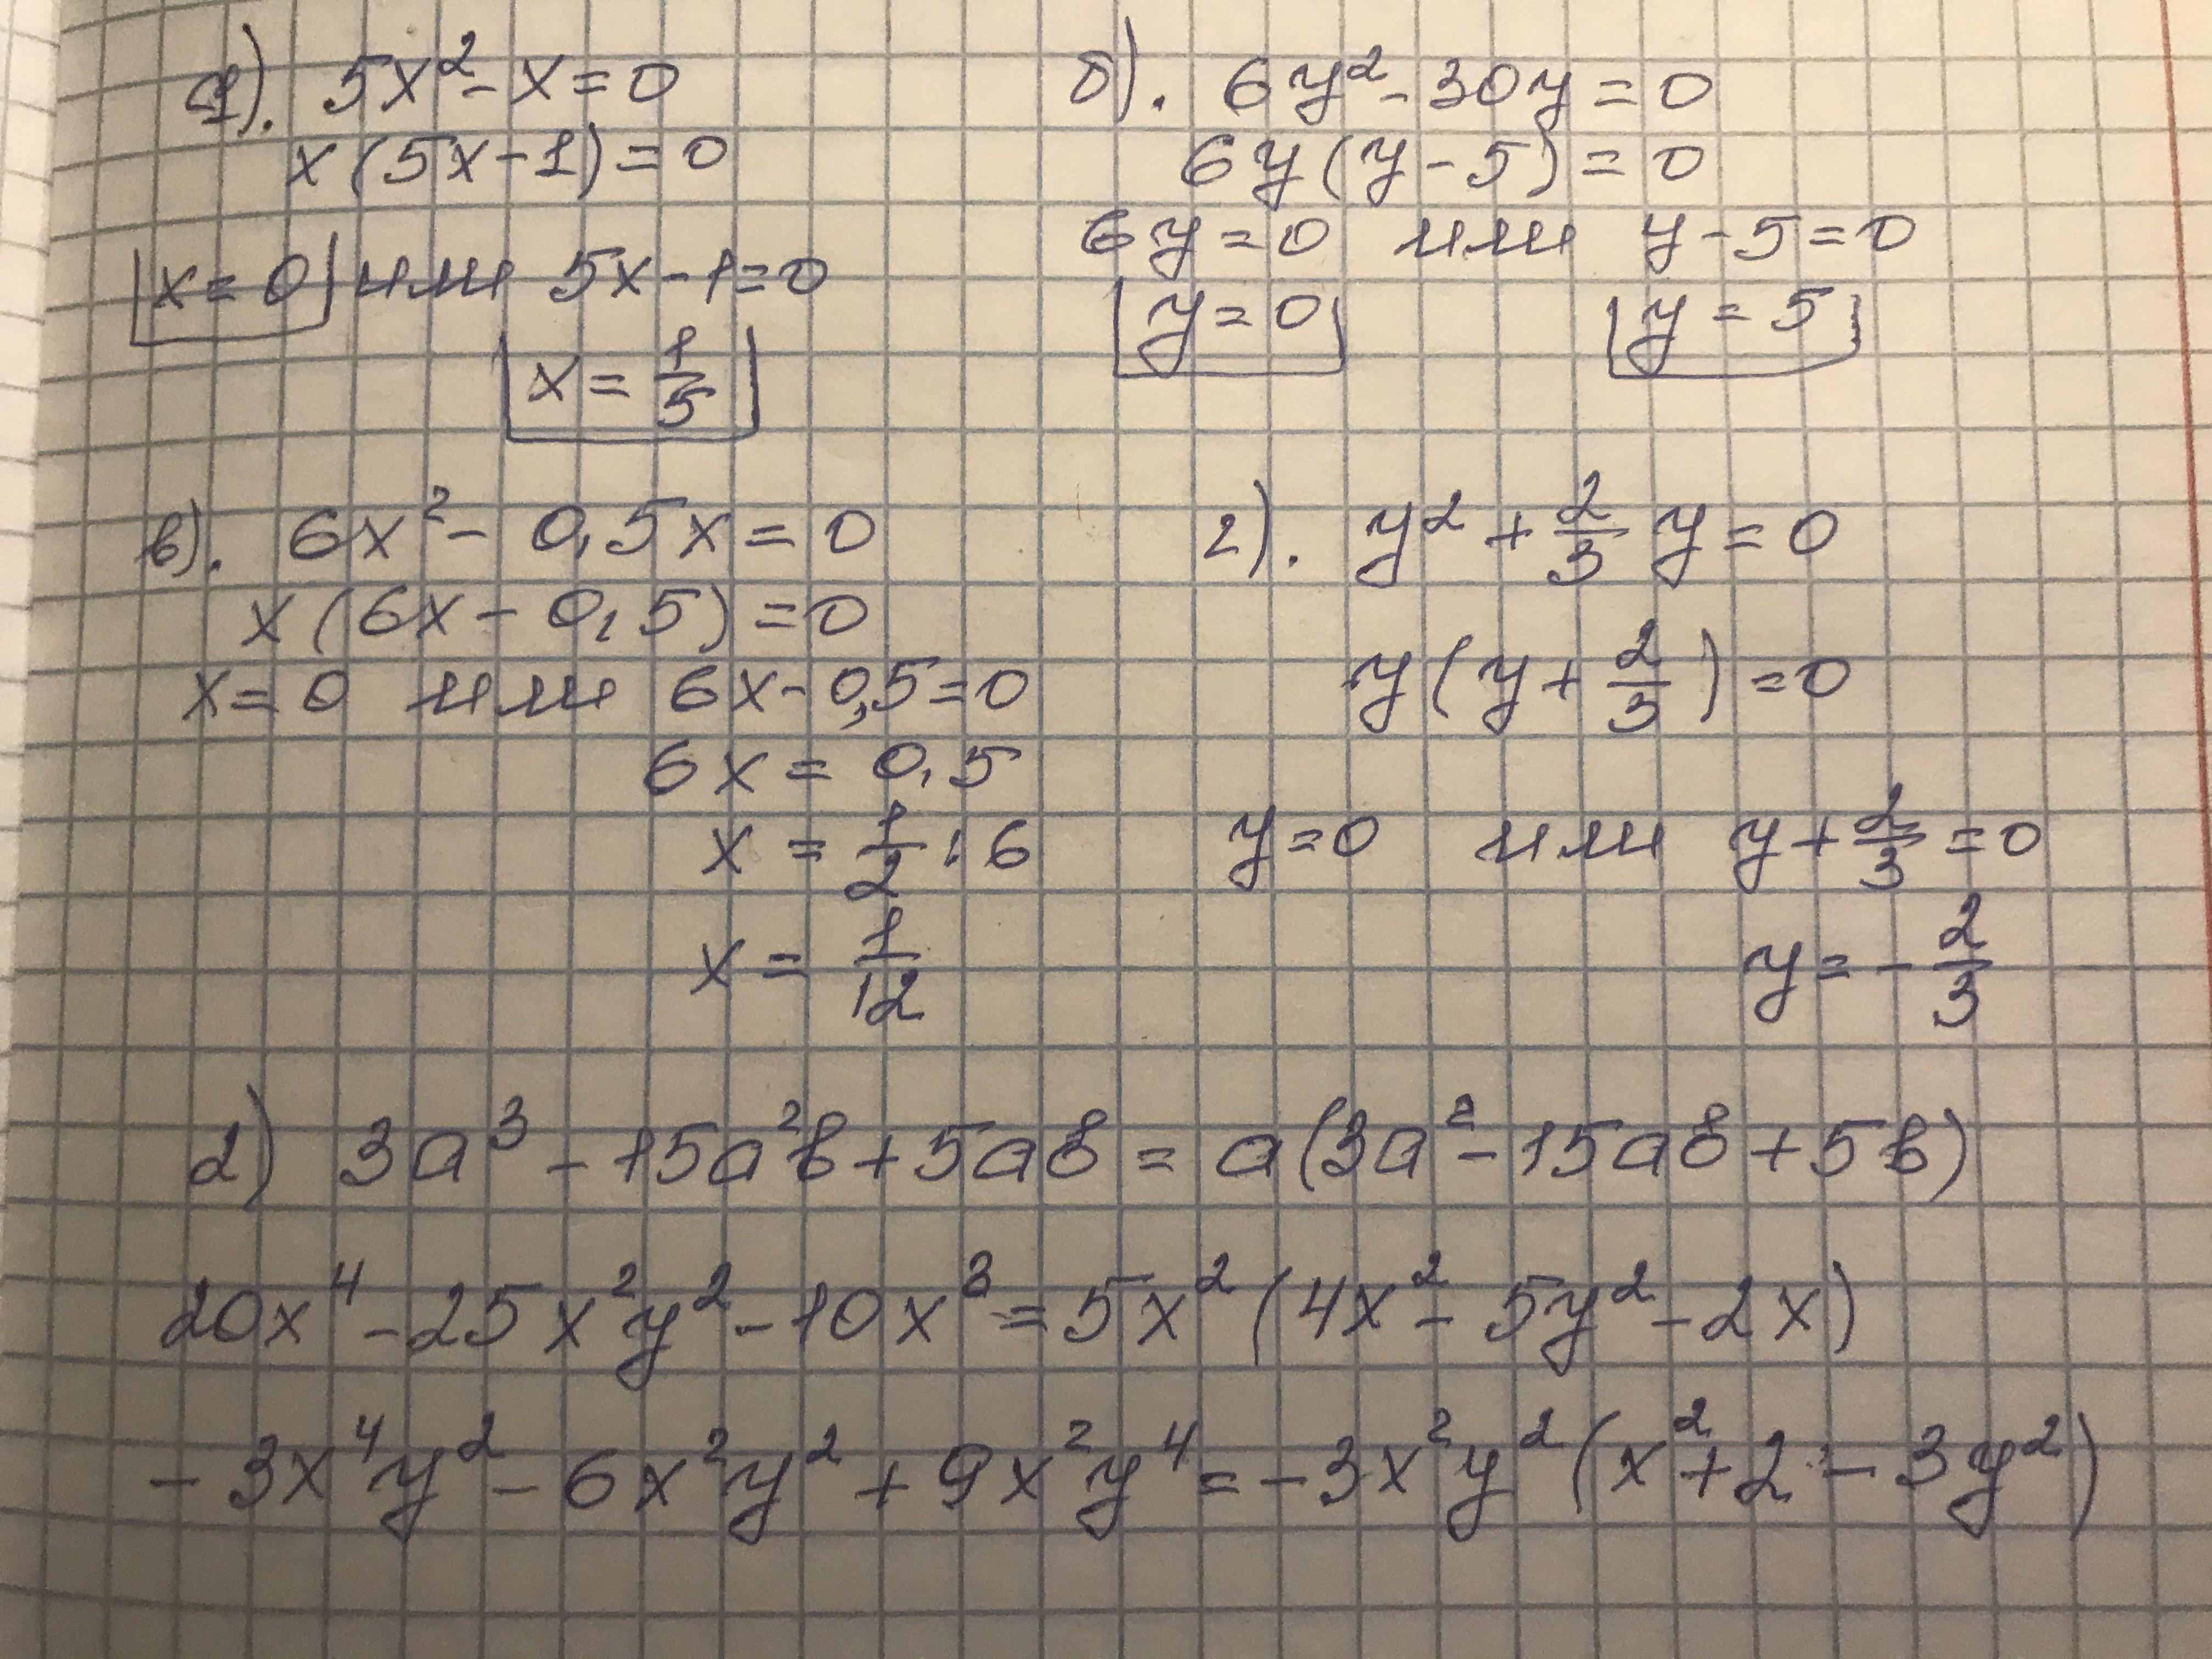 а). 5x² - x = 0
x(5x - 1) = 0
x = 0 или 5x - 1 = 0
x = 1/5
б). 6y² - 30y = 0
6y(y - 5) = 0
6y = 0 или y - 5 = 0
y = 0 y = 5
в). 6x² - 0,5x = 0
x(6x - 0,5) = 0
x = 0 или 6x - 0,5 = 0
6x = 0,5
x = 1/2 : 6
x = 1/12
г). y² + 2/3 y = 0
y(y + 2/3) = 0
y = 0 или y + 2/3 = 0
y = - 2/3
2) 3a³ - 15a²b + 5ab = a(3a² - 15ab + 5b)
20x⁴ - 25x²y² - 10x³ = 5x²(4x² - 5y² - 2x)
- 3x⁴y² - 6x²y² + 9x²y⁴ = -3x²y²(x² + 2 - 3y²)